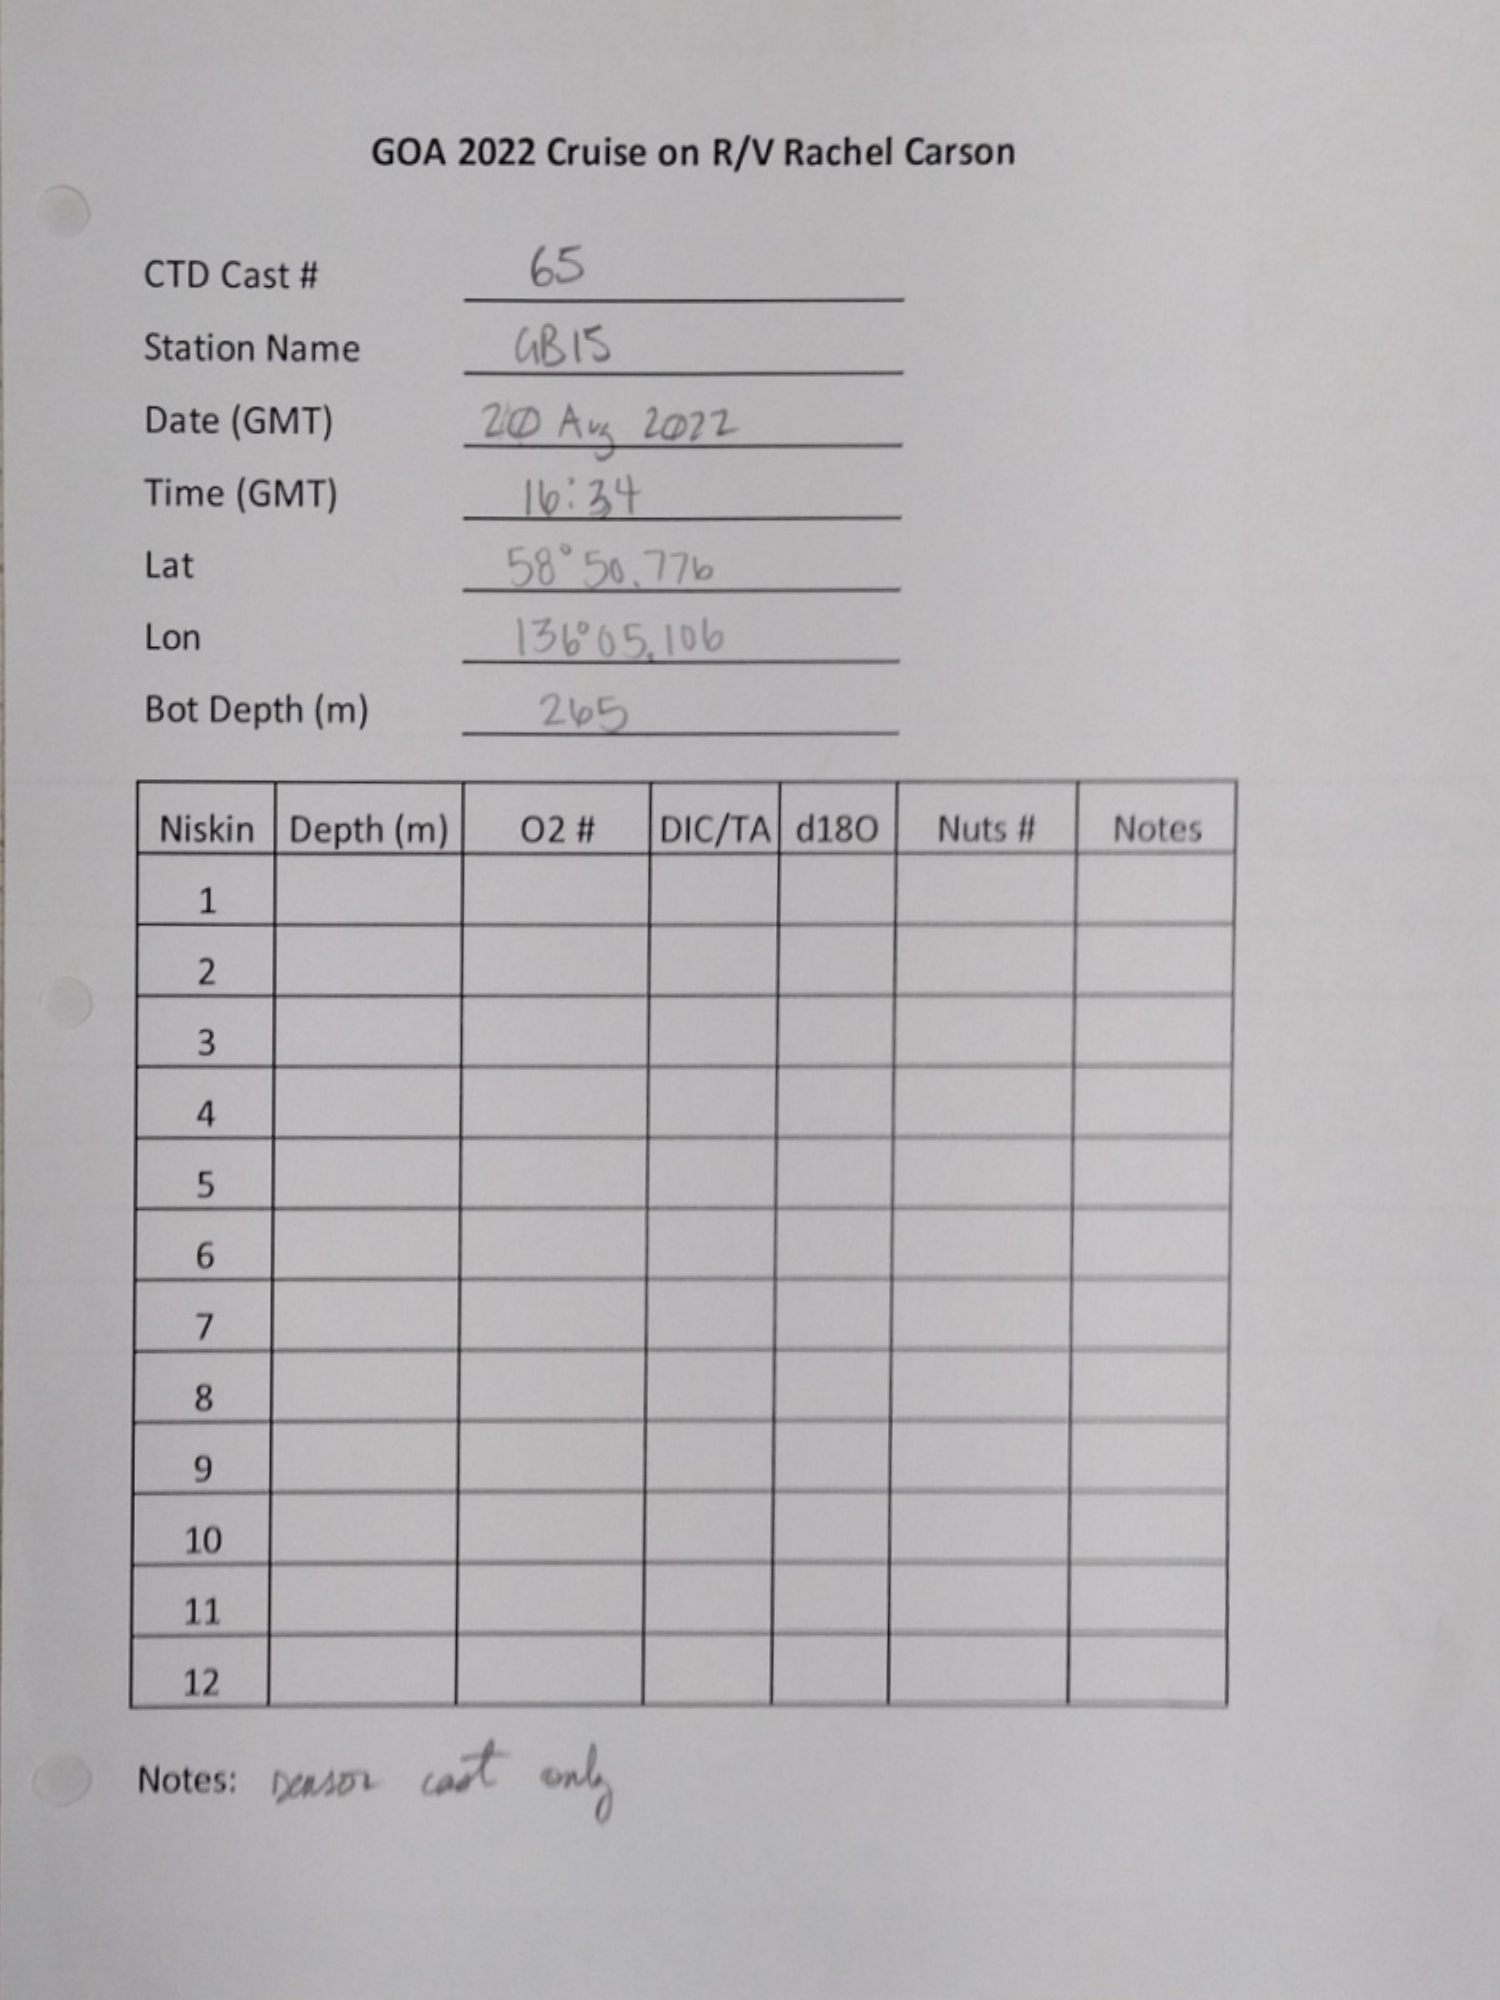 GOA 2022 Cruise on R/V Rachel Carson
CTD Cast # 65
Station Name GB15
Date (GMT) 20 Aug 2022
Time (GMT) 16:34
Lat 58°50.776
Lon 136°05.106
Bot Depth (m) 265
Niskin Depth (m) O2 # DIC/TA d18O Nuts # Notes
1
2
3
4
5
6
7
8
9
10
11
12
Notes: sensor cast only